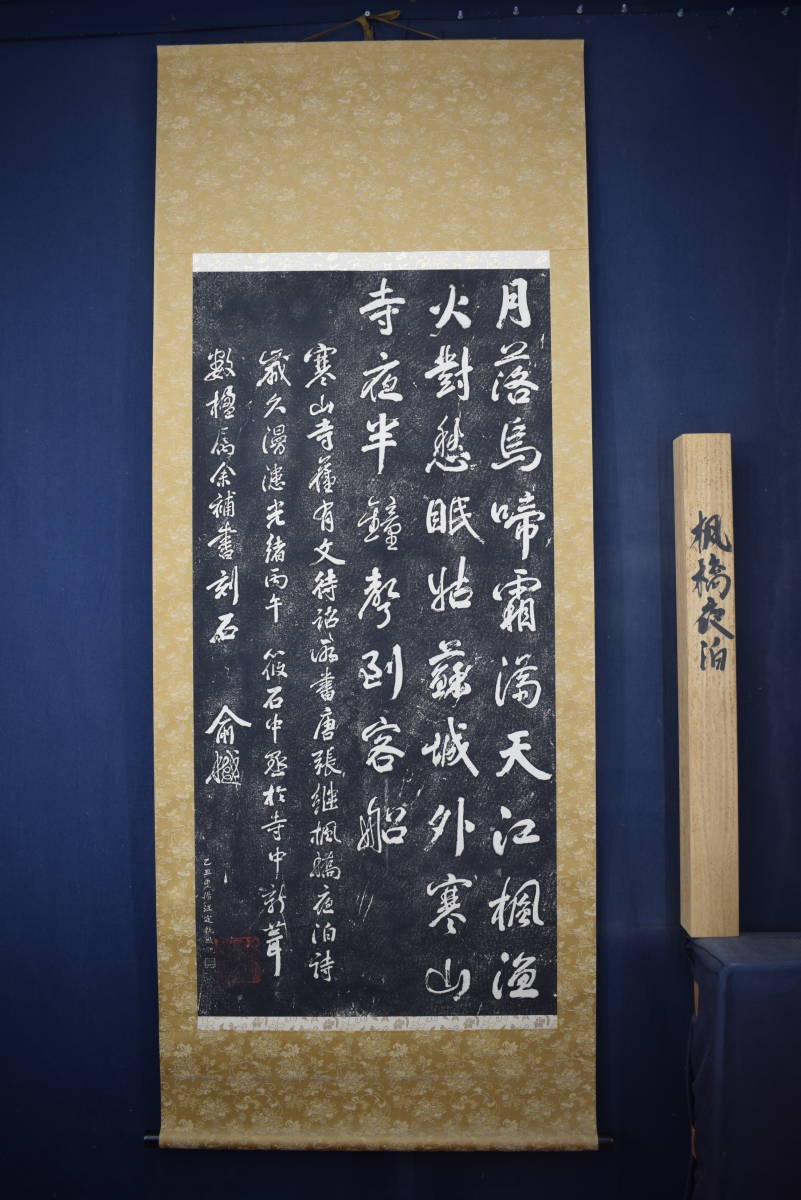 月落烏啼霜滿天江楓漁
火對愁眠姑蘇城外寒山
寺夜半鐘聲到客船
寒山寺舊有文待詔所書唐張繼楓橋夜泊詩
歲久漫漶光緒丙午筱石中丞於寺中新葺
數楹屬余補書刻石
俞樾
楓橋夜泊